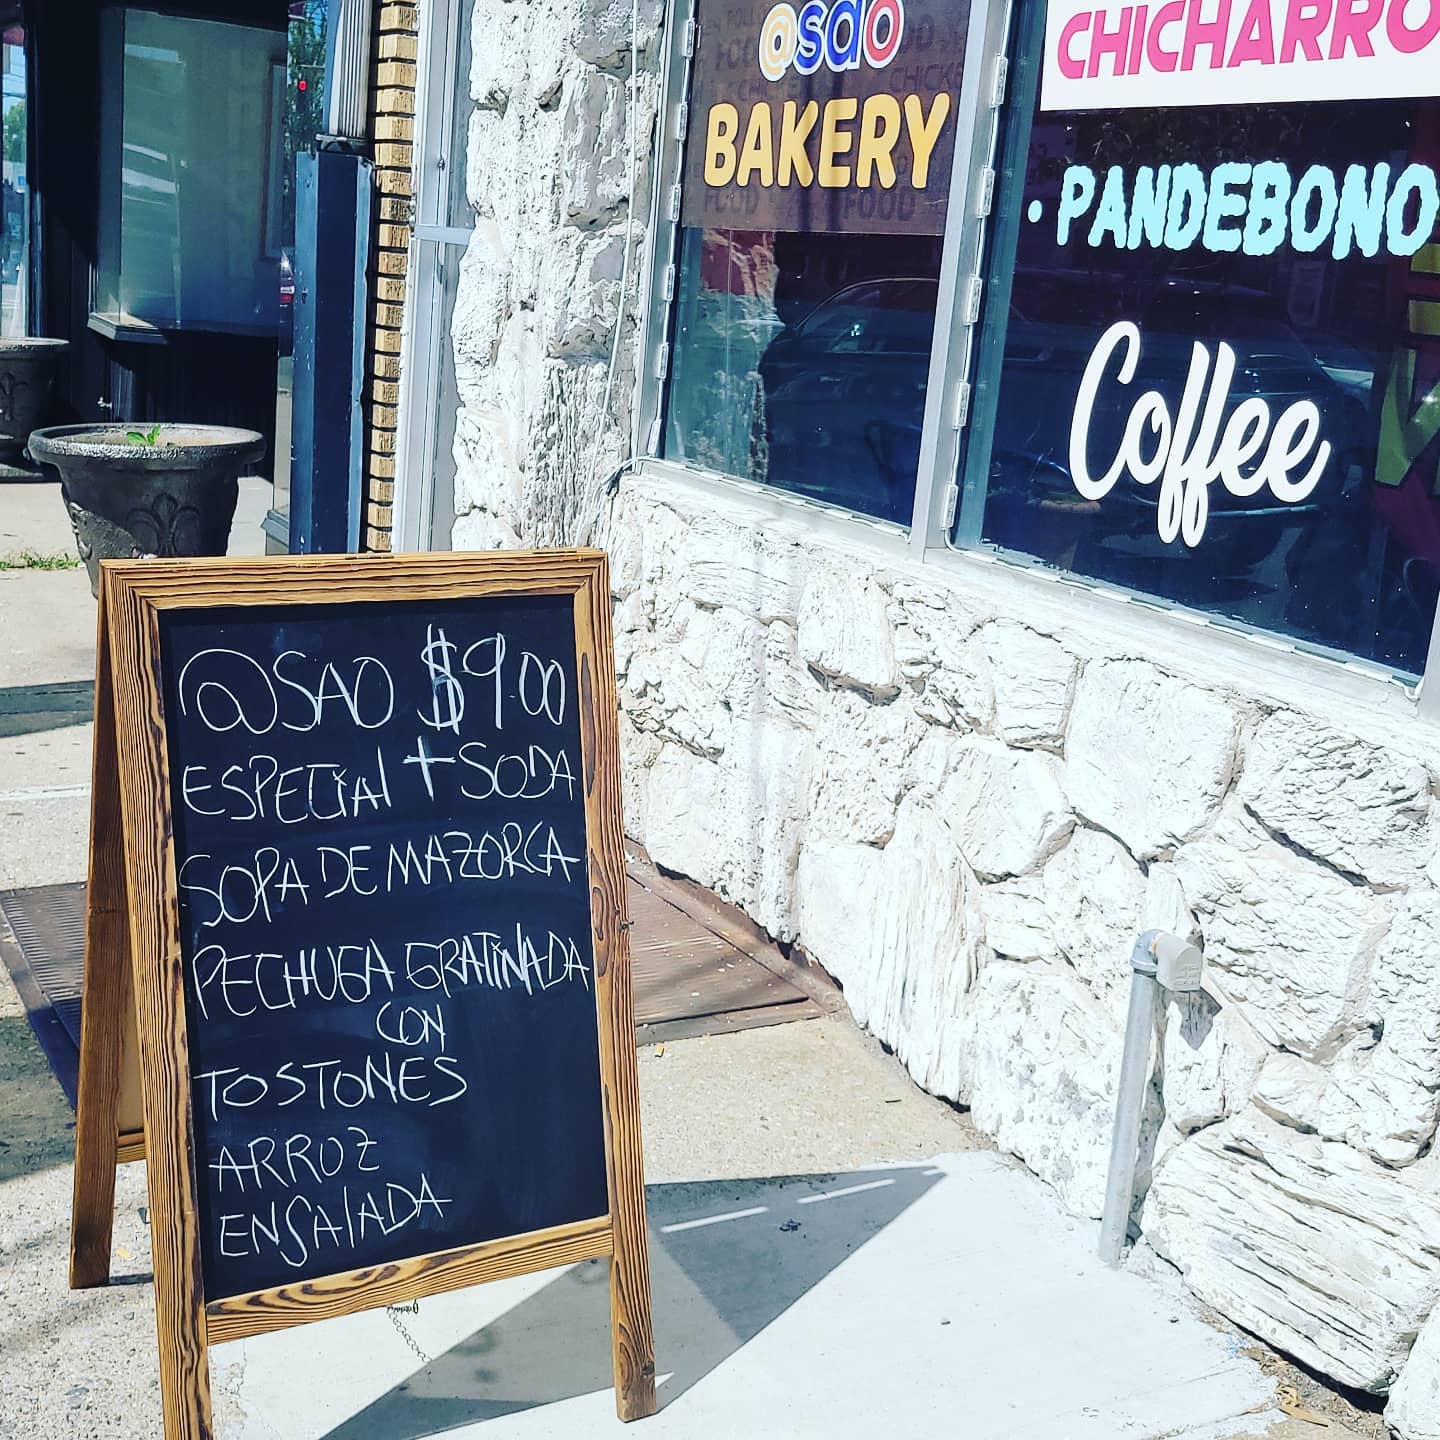 @sao
BAKERY
CHICHARRO
• PANDEBONO
Coffee
@SAO $9.00
ESPECIAl + SODA
SOPA DE MAZORCA
PECHUGA GRATINADA
CON
TOSTONES
ARROZ
ENSAlADA